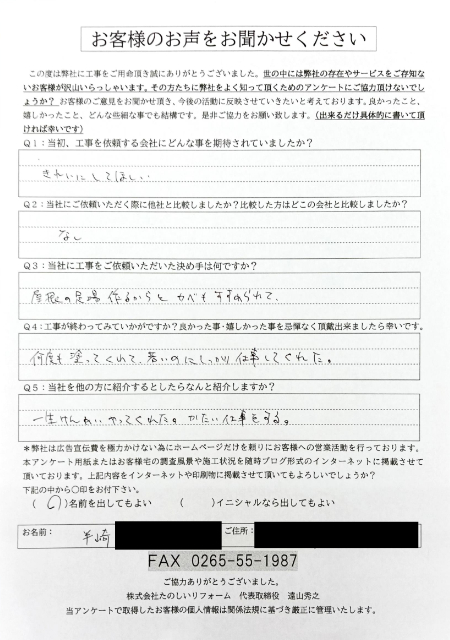 お客様のお声をお聞かせください
この度は弊社に工事をご用命頂き誠にありがとうございました。世の中には弊社の存在やサービスをご存知な
いお客様が沢山いらっしゃいます。そのたちに弊社をよく知って頂くためのアンケートにご協力頂けないでし
ょうか？ お客様のご意見をお聞かせ頂き、今後の活動に反映させていきたいと考えております。良かったこと、
嬉しかったこと、どんな些細な事でも結構です。是非ご協力をお願い致します。（出来るだけ具体的に書いて頂
ければ幸いです）
Q1：当初、工事を依頼する会社にどんな事を期待されていましたか？
きれいにしてほしい
Q2：当社にご依頼いただく際に他社と比較しましたか？比較した方はどこの会社と比較しましたか？
なし
Q3：当社に工事をご依頼いただいた決め手は何ですか？
屋根の足場 作るからと カベも すすめられて、
Q4：工事が終わってみていかがですか？良かった事・嬉しかった事を忌憚なく頂戴出来ましたら幸いです。
何度も 塗ってくれて、若いのにしっかり 仕事してくれた。
Q5：当社を他の方に紹介するとしたらなんと紹介しますか？
一生けんめい やってくれた。かたい仕事をする。
＊弊社は広告宣伝費を極力かけない為にホームページだけを頼りにお客様への営業活動を行っております。
本アンケート用紙またはお客様宅の調査風景や施工状況を随時ブログ形式のインターネットに掲載させて
頂いております。上記内容をインターネットや印刷物に掲載させて頂いてもよろしいでしょうか？
下記の中から〇印をお付下さい。
（ 〇 ）名前を出してもよい （ ）イニシャルなら出してもよい
お名前： ご住所：
FAX 0265-55-1987
ご協力ありがとうございました。
株式会社たのしいリフォーム 代表取締役 遠山秀之
当アンケートで取得したお客様の個人情報は関係法規に基づき厳正に管理いたします。